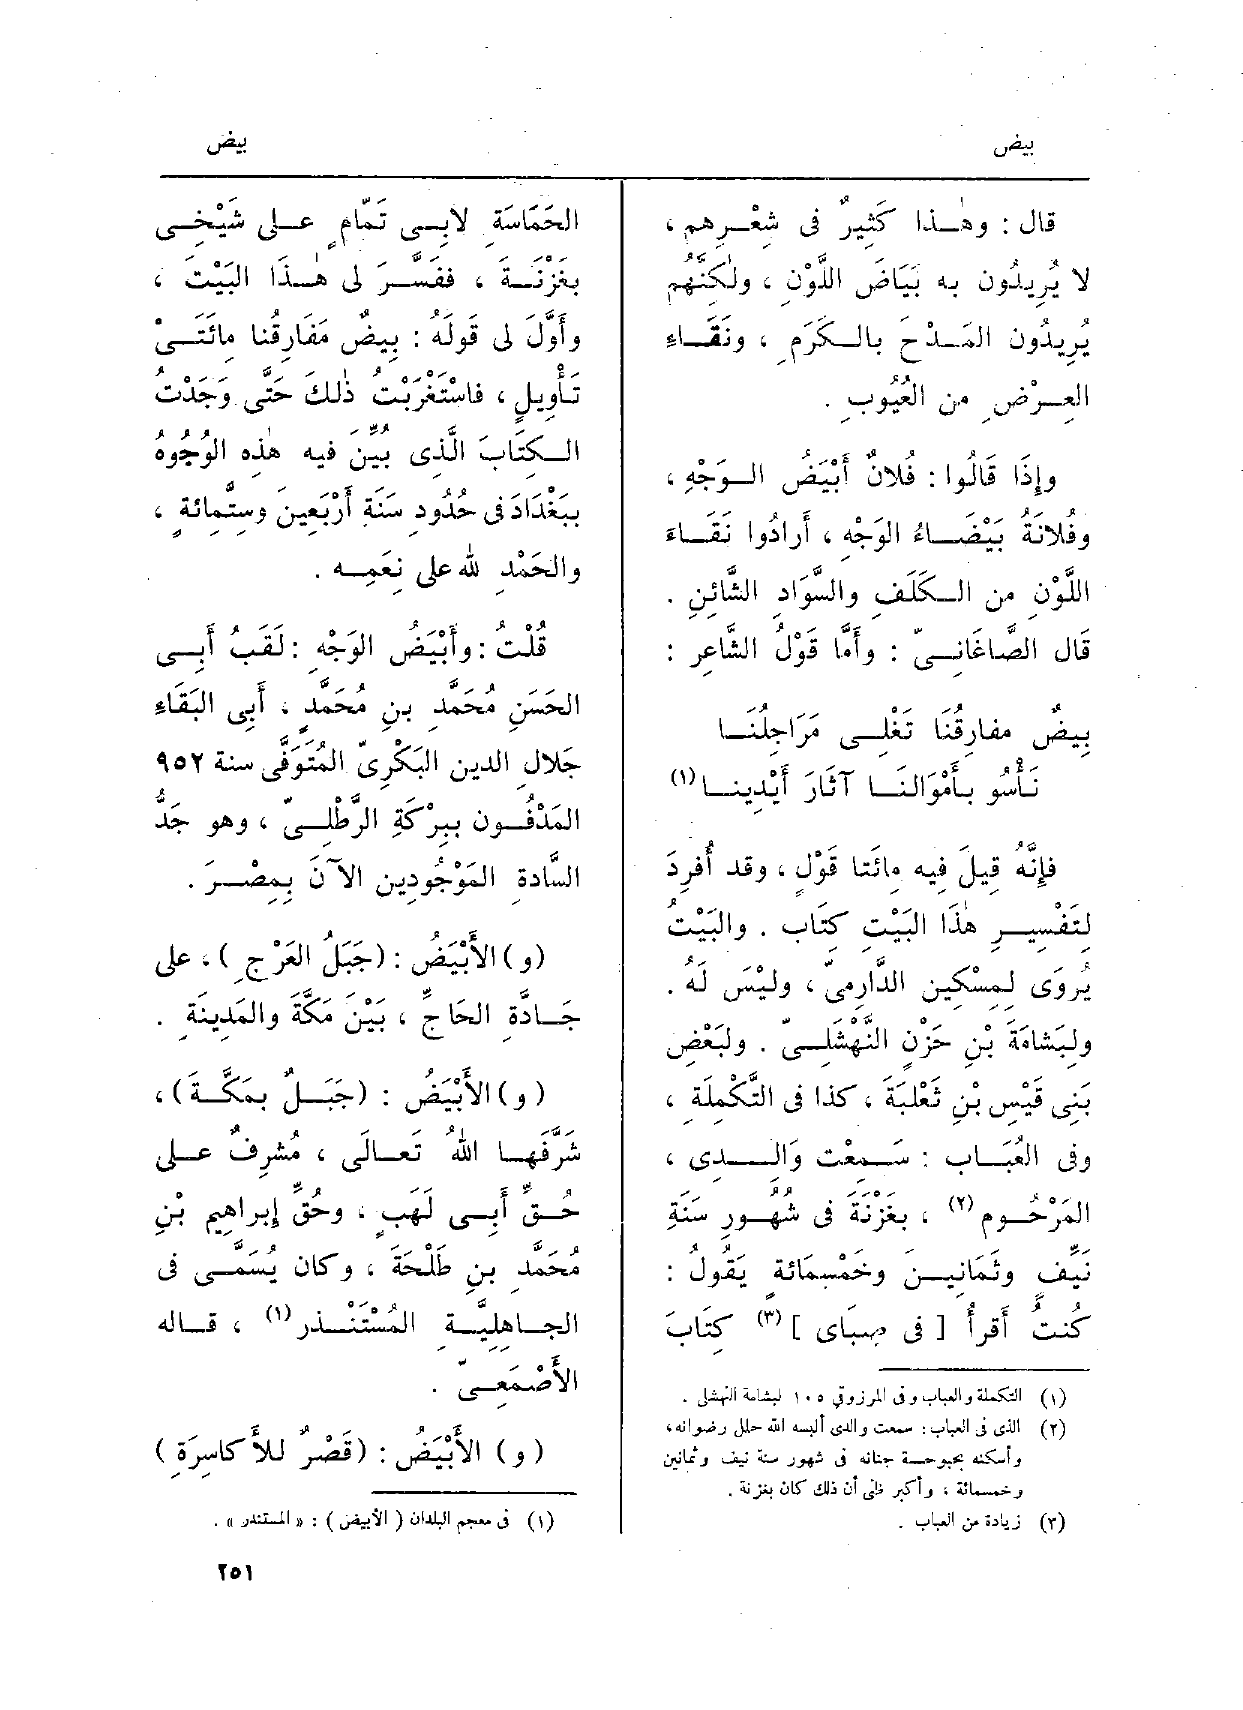 بيض
بيض
قال : وهٰذا كَثِيرٌ فى شِعْرِهم ،
لا يُرِيدُون به بَيَاضَ اللَّوْنِ ، ولٰكِنَّهُم
يُرِيدُون المَدْحَ بالكَرَمِ ، ونَقَاءِ
العِرْضِ من العُيُوبِ .
وإِذَا قَالُوا : فُلانٌ أَبْيَضُ الوَجْهِ ،
وفُلانَةُ بَيْضَاءُ الوَجْهِ ، أَرادُوا نَقَاءَ
اللَّوْنِ من الكَلَفِ والسَّوَادِ الشَّائِنِ .
قَال الصَّاغَانِىّ : وأَمَّا قَوْلُ الشَّاعِرِ :
بِيضٌ مفارِقُنَا تَغْلِى مَرَاجِلُنَا
نَأْسُو بأَمْوَالِنَا آثَارَ أَيْدِينا (١)
فإِنَّهُ قِيلَ فيه مِائَتا قَوْلٍ ، وقد أُفرِدَ
لتَفْسِيرِ هٰذَا البَيْتِ كِتَاب . والبَيْتُ
يُرْوَى لمِسْكِين الدَّارِمىِّ ، ولَيْسَ لَهُ .
ولِبَشَامَةَ بْنِ حَزْنٍ النَّهْشَلِىّ . ولبَعْضِ
بَنِى قَيْسِ بْنِ ثَعْلَبَةَ ، كذا فى التَّكْمِلَة ،
وفى العُبَاب : سَمِعْت وَالِدِى ،
المَرْحُوم (٢) ، بغَزْنَةَ فى شُهُورِ سَنَةِ
نَيِّفٍ وثَمَانِينَ وخَمْسِمَائةٍ يَقُولُ :
كُنتُ أَقرأُ [ فى صِبَاى ] (٣) كِتَابَ
(١) التكملة والعباب وفى المرزوقى ١٠٥ لبشامة النهشلى .
(٢) الذى فى العباب : سمعت والدى ألبسه الله حلل رضوانه ،
وأسكنه بحبوحة جنانه فى شهور سنة نيف وثمانين
وخمسمائة ، وأكبر ظنى أن ذلك كان بغزنة .
(٣) زيادة من العباب .
الحَمَاسَةِ لأَبِى تَمَّامٍ عَلى شَيْخِى
بغَزْنَةَ ، ففَسَّرَ لى هٰذا البَيْتَ ،
وأَوَّلَ لى قَولَهُ : بِيضٌ مَفَارِقُنا مِائَتَىْ
تَأْوِيلٍ ، فاسْتَغْرَبْتُ ذٰلِكَ حَتَّى وَجَدْتُ
الكِتَابَ الَّذِى بُيِّنَ فيه هٰذِه الوُجُوهُ
ببَغْدَادَ فى حُدُودِ سَنَةِ أَرْبَعِينَ وسِتُّمائةٍ ،
والحَمْدِ للهِ على نِعَمِه .
قُلْتُ : وأَبْيَضُ الوَجْهِ : لَقَبُ أَبِى
الحَسَنِ مُحَمَّدِ بنِ مُحَمَّدٍ ، أَبِى البَقَاءِ
جَلال الدين البَكْرِىّ المُتَوَفَّى سنة ٩٥٢
المَدْفُون ببِرْكَةِ الرَّطْلِىّ ، وهو جَدُّ
السَّادةِ المَوْجُودِين الآنَ بِمِصْرَ .
(و) الأَبْيَضُ : (جَبَلُ العَرْجِ ) ، على
جَادَّةِ الحَاجِّ ، بَيْنَ مَكَّةَ والمَدِينَةِ .
(و) الأَبْيَضُ : (جَبَلٌ بمَكَّةَ) ،
شَرَّفَها اللهُ تَعالَى ، مُشرِفٌ على
حُقِّ أَبِى لَهَبٍ ، وحُقِّ إِبراهِيم بْنِ
مُحَمَّدِ بنِ طَلْحَةَ ، وكان يُسَمَّى فى
الجاهِليَّةِ المُسْتَنْذر (١) ، قاله
الأَصْمَعِىّ .
(و) الأَبْيَضُ : (قَصْرٌ للأَكاسِرَةِ )
(١) فى معجم البلدان ( الأبيض ) : «المستندر» .
٢٥١